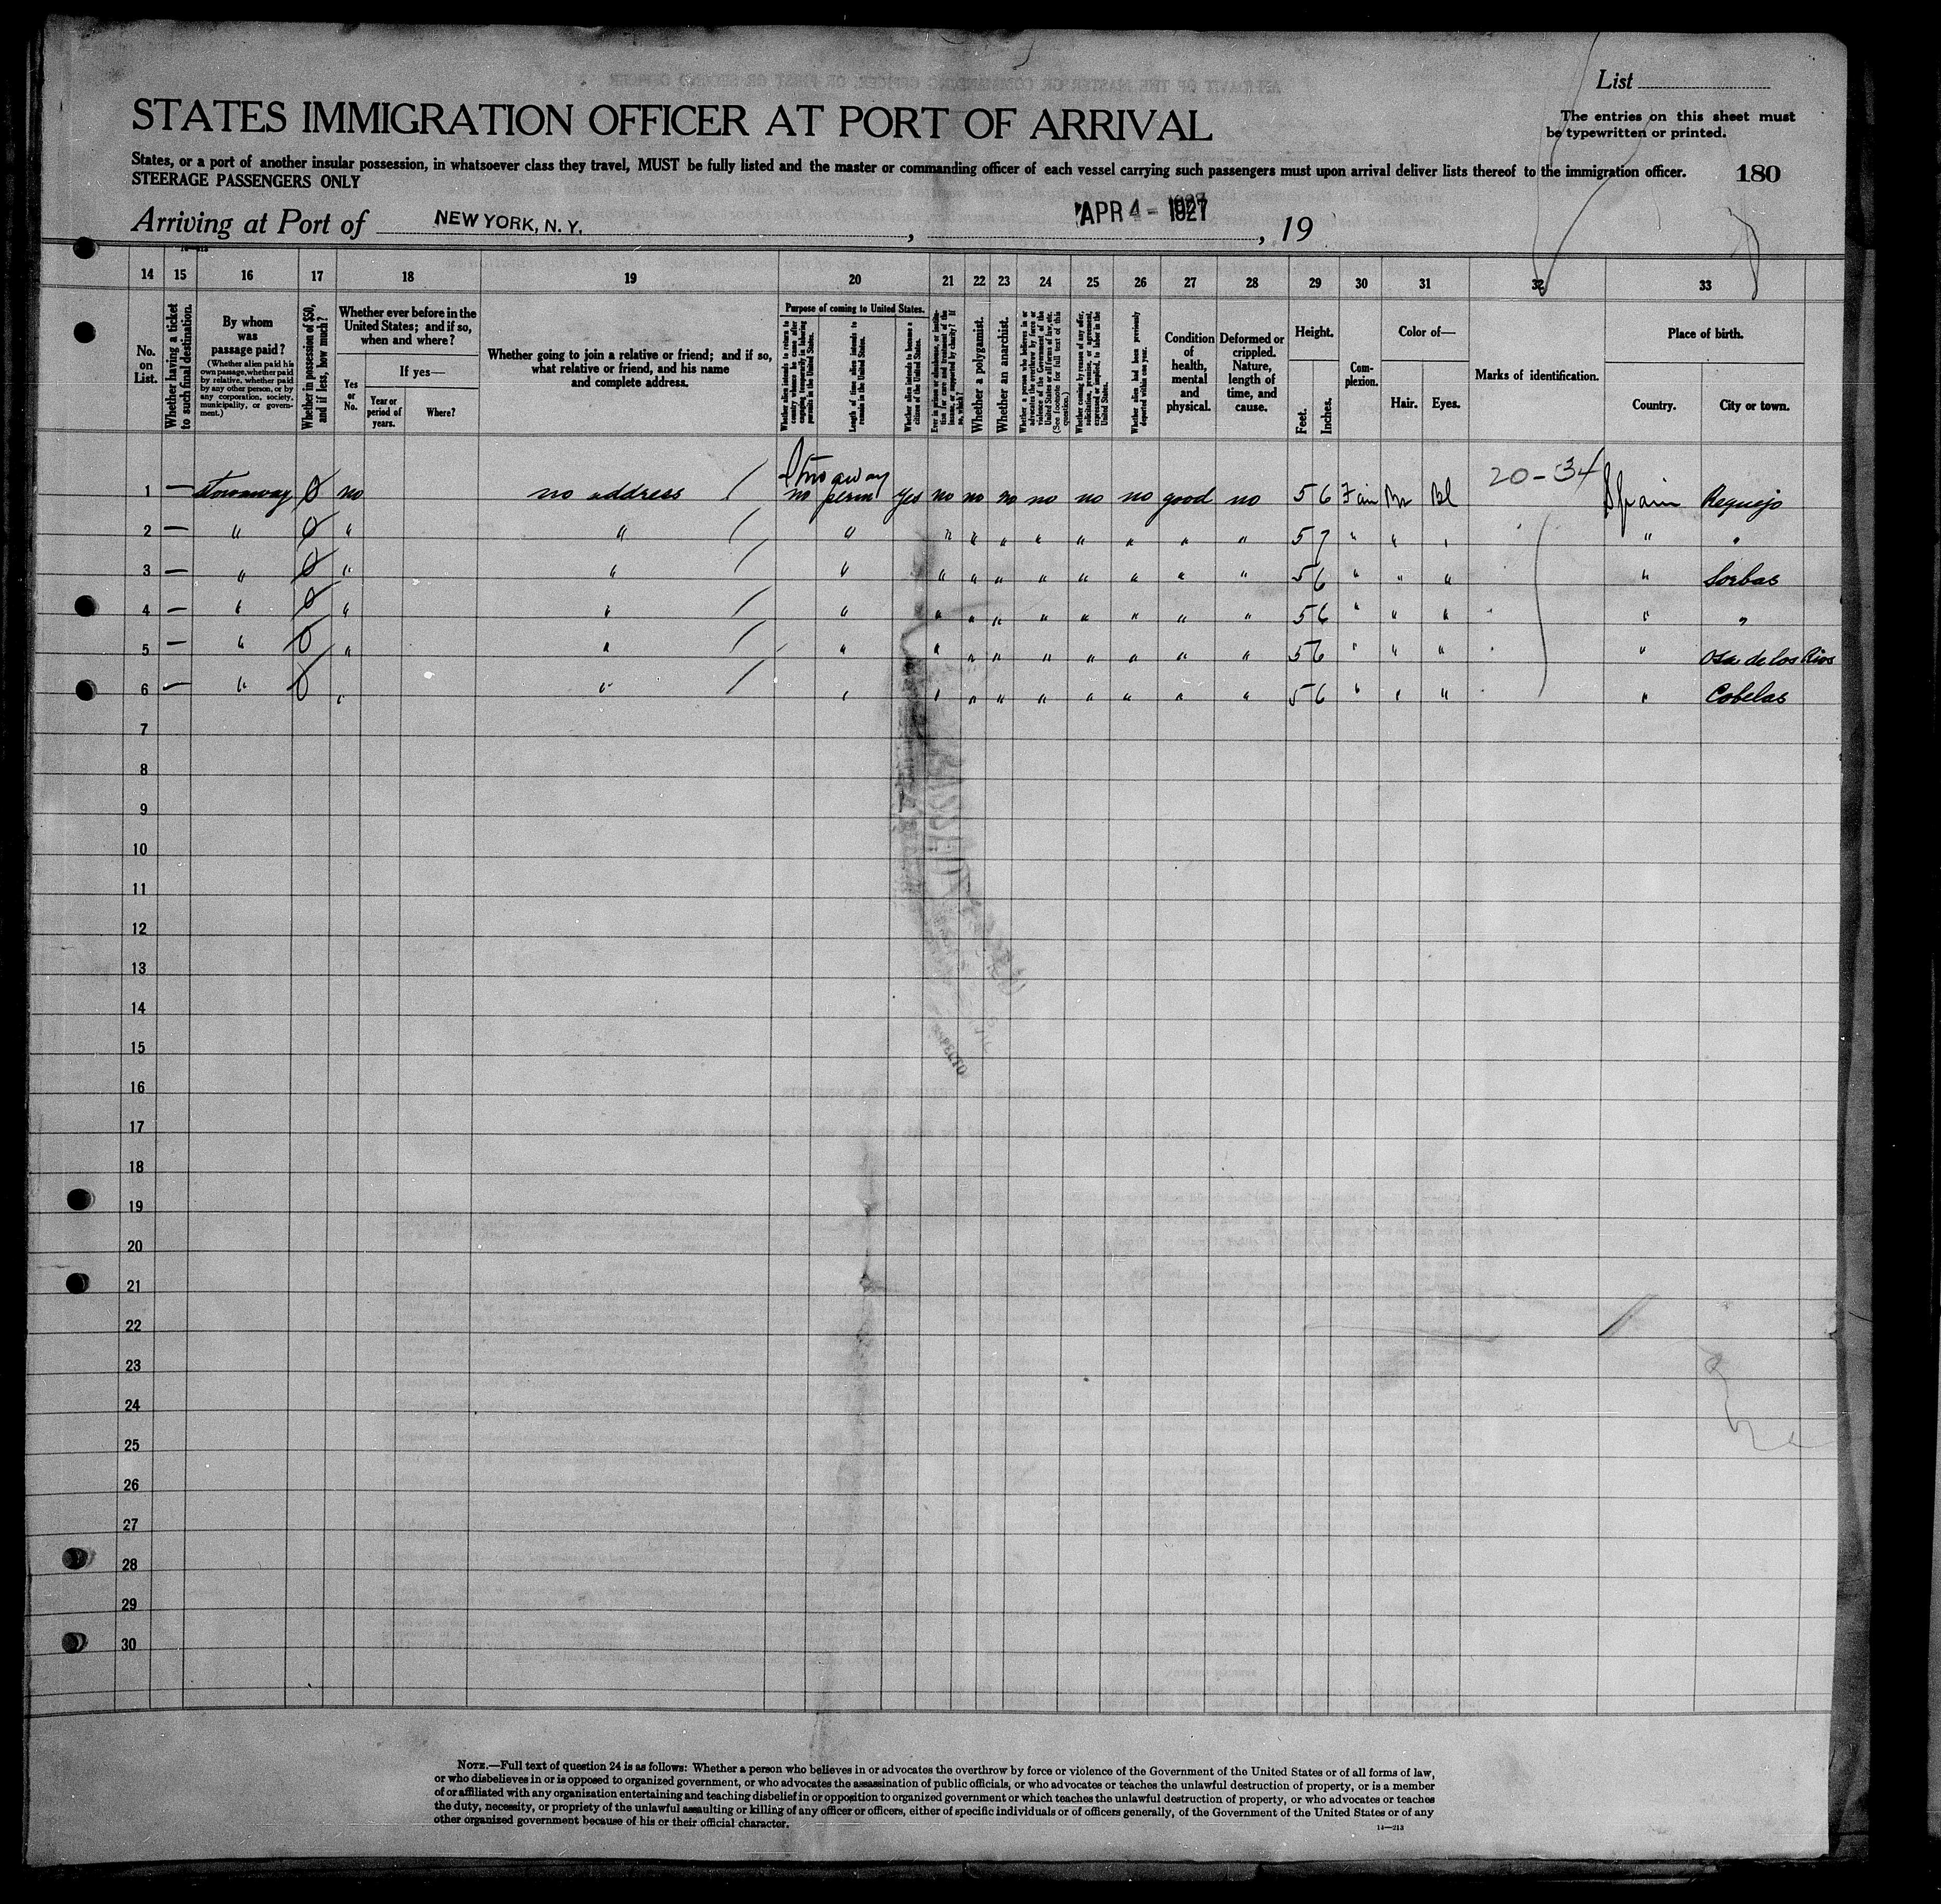 List
STATES IMMIGRATION OFFICER AT PORT OF ARRIVAL
The entries on this sheet must
be typewritten or printed.
States, or a port of another insular possession, in whatsoever class they travel, MUST be fully listed and the master or commanding officer of each vessel carrying such passengers must upon arrival deliver lists thereof to the immigration officer.
STEERAGE PASSENGERS ONLY
180
Arriving at Port of NEW YORK, N. Y. , APR 4 - 1927 , 19
14 15 16 17 18 19 20 21 22 23 24 25 26 27 28 29 30 31 32 33
No. on List.
Whether having a ticket to such final destination.
By whom was passage paid?
(Whether alien paid his own passage, whether paid by relative, whether paid by any other person, or by any corporation, society, municipality, or government.)
Whether in possession of $50, and if less, how much?
Whether ever before in the United States; and if so, when and where?
Yes or No.
If yes—
Year or period of years.
Where?
Whether going to join a relative or friend; and if so, what relative or friend, and his name and complete address.
Purpose of coming to United States.
Whether alien intends to return to country whence he came after engaging temporarily in laboring pursuits in the United States.
Length of time alien intends to remain in the United States.
Whether alien intends to become a citizen of the United States.
Whether a polygamist.
Whether an anarchist.
(See footnote for full text of this question.)
Whether coming by reason of any offer, solicitation, promise, or agreement, expressed or implied, to labor in the United States.
Whether alien had been previously deported within one year.
Condition of health, mental and physical.
Deformed or crippled. Nature, length of time, and cause.
Height.
Feet.
Inches.
Complexion.
Color of—
Hair.
Eyes.
Marks of identification.
Place of birth.
Country.
City or town.
Stowaway 20-34
1 — Stowaway 0 no no address / no perm yes no no no no no no good no 5 6 Fair Br Bl Spain Requejo
2 — " 0 " " / " " " " " " " " " 5 7 " " " " "
3 — " 0 " " / " " " " " " " " " 5 6 " " " " Sorbas
4 — " 0 " " / " " " " " " " " " 5 6 " " " " "
5 — " 0 " " / " " " " " " " " " 5 6 " " " " Osa de los Rios
6 — " 0 " " / " " " " " " " " " 5 6 " " " " Cobelas
7
8
9
10
11
12
13
14
15
16
17
18
19
20
21
22
23
24
25
26
27
28
29
30
NOTE.—Full text of question 24 is as follows: Whether a person who believes in or advocates the overthrow by force or violence of the Government of the United States or of all forms of law,
or who disbelieves in or is opposed to organized government, or who advocates the assassination of public officials, or who advocates or teaches the unlawful destruction of property, or is a member
of or affiliated with any organization entertaining and teaching disbelief in or opposition to organized government or which teaches the unlawful destruction of property, or who advocates or teaches
the duty, necessity, or propriety of the unlawful assaulting or killing of any officer or officers, either of specific individuals or of officers generally, of the Government of the United States or of any
other organized government because of his or their official character.
14—213